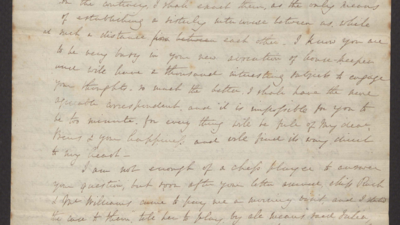 On the contrary I shall exact them, as the only means
of establishing a sisterly intercourse between us, while
at such a distance from each other. I know you are
to be very busy in your new avocation of housekeeper
will have a thousand interesting subjects to engage
your thoughts. so much the better I shall have the more
agreable correspondent, and it is impossible for you to
be too minute, for every thing will be full of my dear
& your happiness, and will find its way direct
to my heart—
I am not enough of a chess player to answer
your question, but soon after your letter arrived,
Williams came to pay me a morning visit, and I
to them, told her to play, by all means